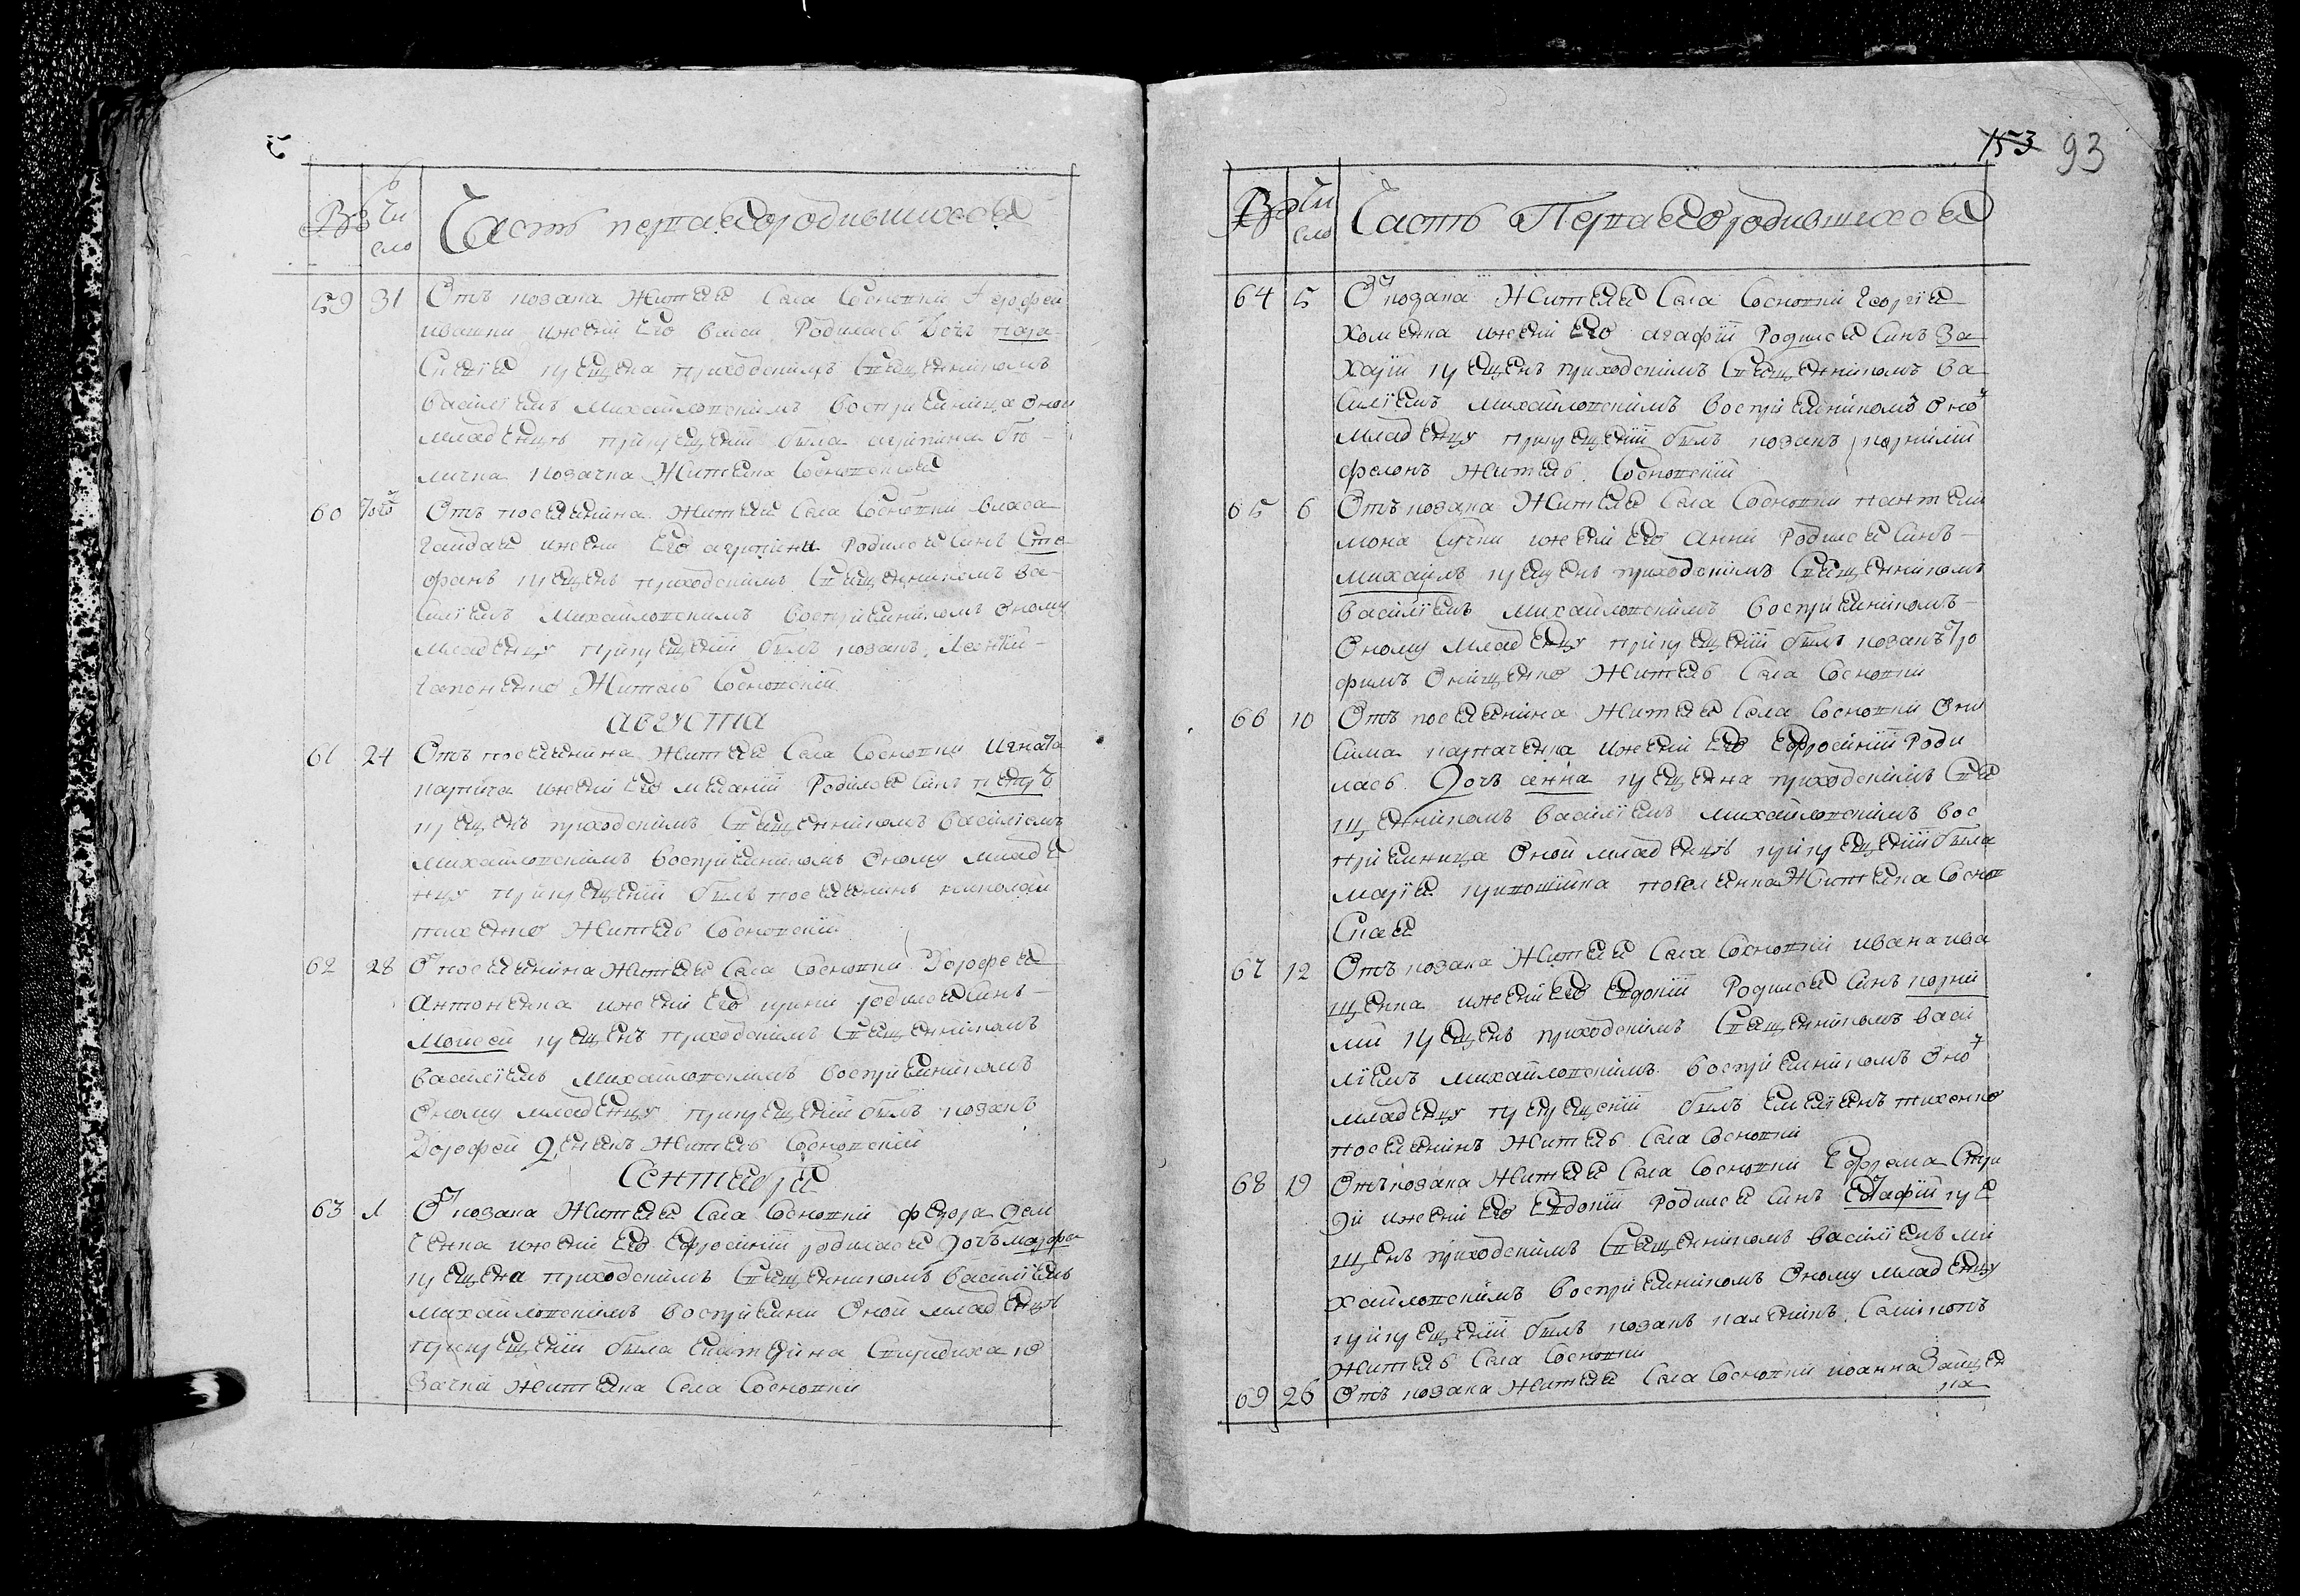 Чи
сло
Часть перва ѡ родившихся
59 31 Отъ козака жителя села Сосновки Герофея
ивашки и жени его васи родилась дочь пара-
скевїя крещена приходскимъ священникомъ
василїемъ михайловскимъ воспрїемница оной
младенцѣ при крещенїи была
козачка жителка Сосновская
60 тогѡ Отъ поселянина жителя села Сосновки власа
гайдая и жени его агрипини родился синъ сте
фанъ крещенъ приходскимъ священникомъ ва-
силїемъ михайловскимъ воспрїемникомъ оному
младенцу при крещенїи былъ козакъ леонтїй
гапоненко житель Сосновскїй
августа
61 24 Отъ поселянина жителя села Сосновки игната
карпича и женѣ его меланїи родился синъ петръ
крещенъ приходскимъ священникомъ василїемъ
михайловскимъ воспрїемникомъ оному младе
нцу при крещенїи былъ поселянинъ николай
тихенко житель Сосновскїй
62 28 Ѿ поселянина жителя села Сосновки Дорофея
антоненка и женѣ его ирини родился синъ
Моисей крещенъ приходскимъ священникомъ
василїемъ михайловскимъ воспрїемникомъ
оному младенцу при крещенїи былъ козакъ
Дорофей житель Сосновскїй
Сентября
63 1 Ѿ козака жителя села Сосновки федора дем
ченка и женѣ его Ефросинїи родилася дочь марфа
крещена приходскимъ священникомъ василїемъ
михайловскимъ воспрїемни оной младенцѣ
при крещенїи была екатерина Свиридиха ко
зачка жителка села Сосновки
153 93
Чи
сло
Часть Перва ѡ родившихся
64 5 Ѿ козака жителя села Сосновки георгїя
хоменка и женѣ его агафїи родился синъ За
харїй крещенъ приходскимъ священникомъ ва
силїемъ михайловскимъ воспрїемникомъ оно
младенцу при крещенїи былъ козакъ корнилїй
филонъ житель Сосновскїй
65 6 Отъ козака жителя села Сосновки пантели
мона Сучки и женѣ его анни родился синъ
михаилъ крещенъ приходскимъ священникомъ
василїемъ михайловскимъ воспрїемникомъ
оному младенцу при крещенїи былъ козакъ тро
фимъ онищенко житель села Сосновки
66 10 Отъ поселянина жителя села Сосновки они
сима карпаченка и женѣ его Ефросинїи роди
лась дочь анна крещенна приходскимъ свя
щенникомъ василїемъ михайловскимъ вос
прїемница оной младенцѣ при крещенїи была
марїя поселянка жителка Соснов
ская
67 12 Отъ козака жителя села Сосновки ивана ива
щенка и женѣ его Евдокїи родился синъ корни
лїй крещенъ приходскимъ священникомъ васи
лїемъ михайловскимъ воспрїемникомъ оно
младенцу при крещенїи былъ емелїянъ тихенко
поселянинъ житель села Сосновки
68 19 Отъ козака жителя села Сосновки Ефрема Стри
и женѣ его Евдокїи родился синъ Естафїй кре
щенъ приходскимъ священникомъ василїемъ ми
хайловскимъ воспрїемникомъ оному младенцу
при крещенїи былъ козакъ
житель села Сосновки
69 26 Отъ козака жителя села Сосновки иоанна Зайцен
ка